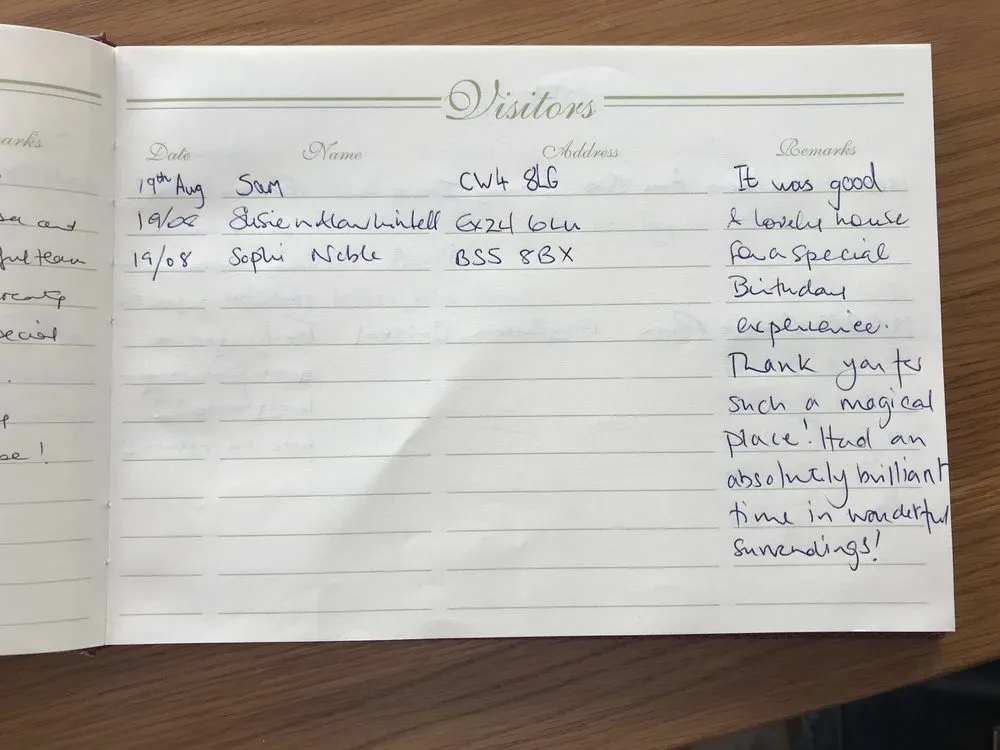 Visitors
Date Name Address Remarks
19th Aug Sam CW4 8LG It was good
19/08 Susie A lovely house
19/08 Sophi Noble BS5 8BX for a special
Birthday
experience.
Thank you for
such a magical
place! Had an
absolutely brilliant
time in wonderful
surrendings!
arks
and
team
ecial
se!